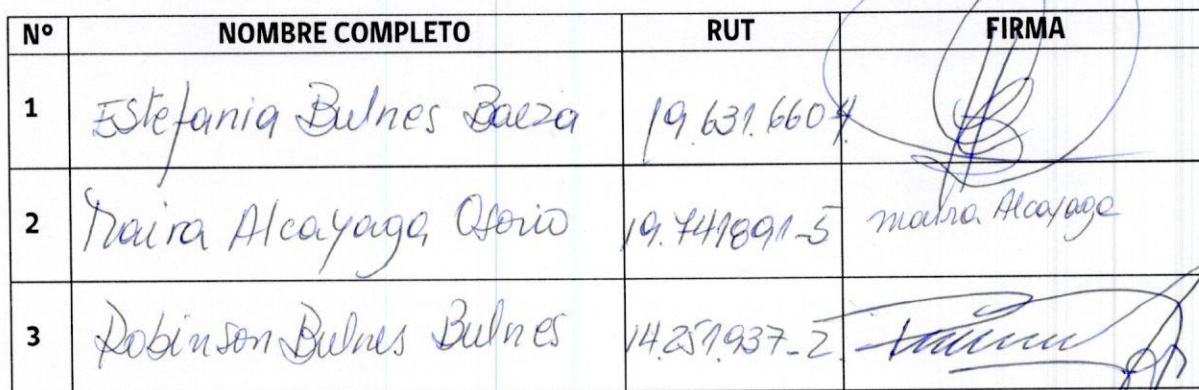 Nº NOMBRE COMPLETO RUT FIRMA
1 Estefania Bulnes Baeza 19.631.660-4
2 Maira Alcayaga Osorio 19.741891-5 maira Alcayaga
3 Robinson Bulnes Bulnes 14.251.937-2